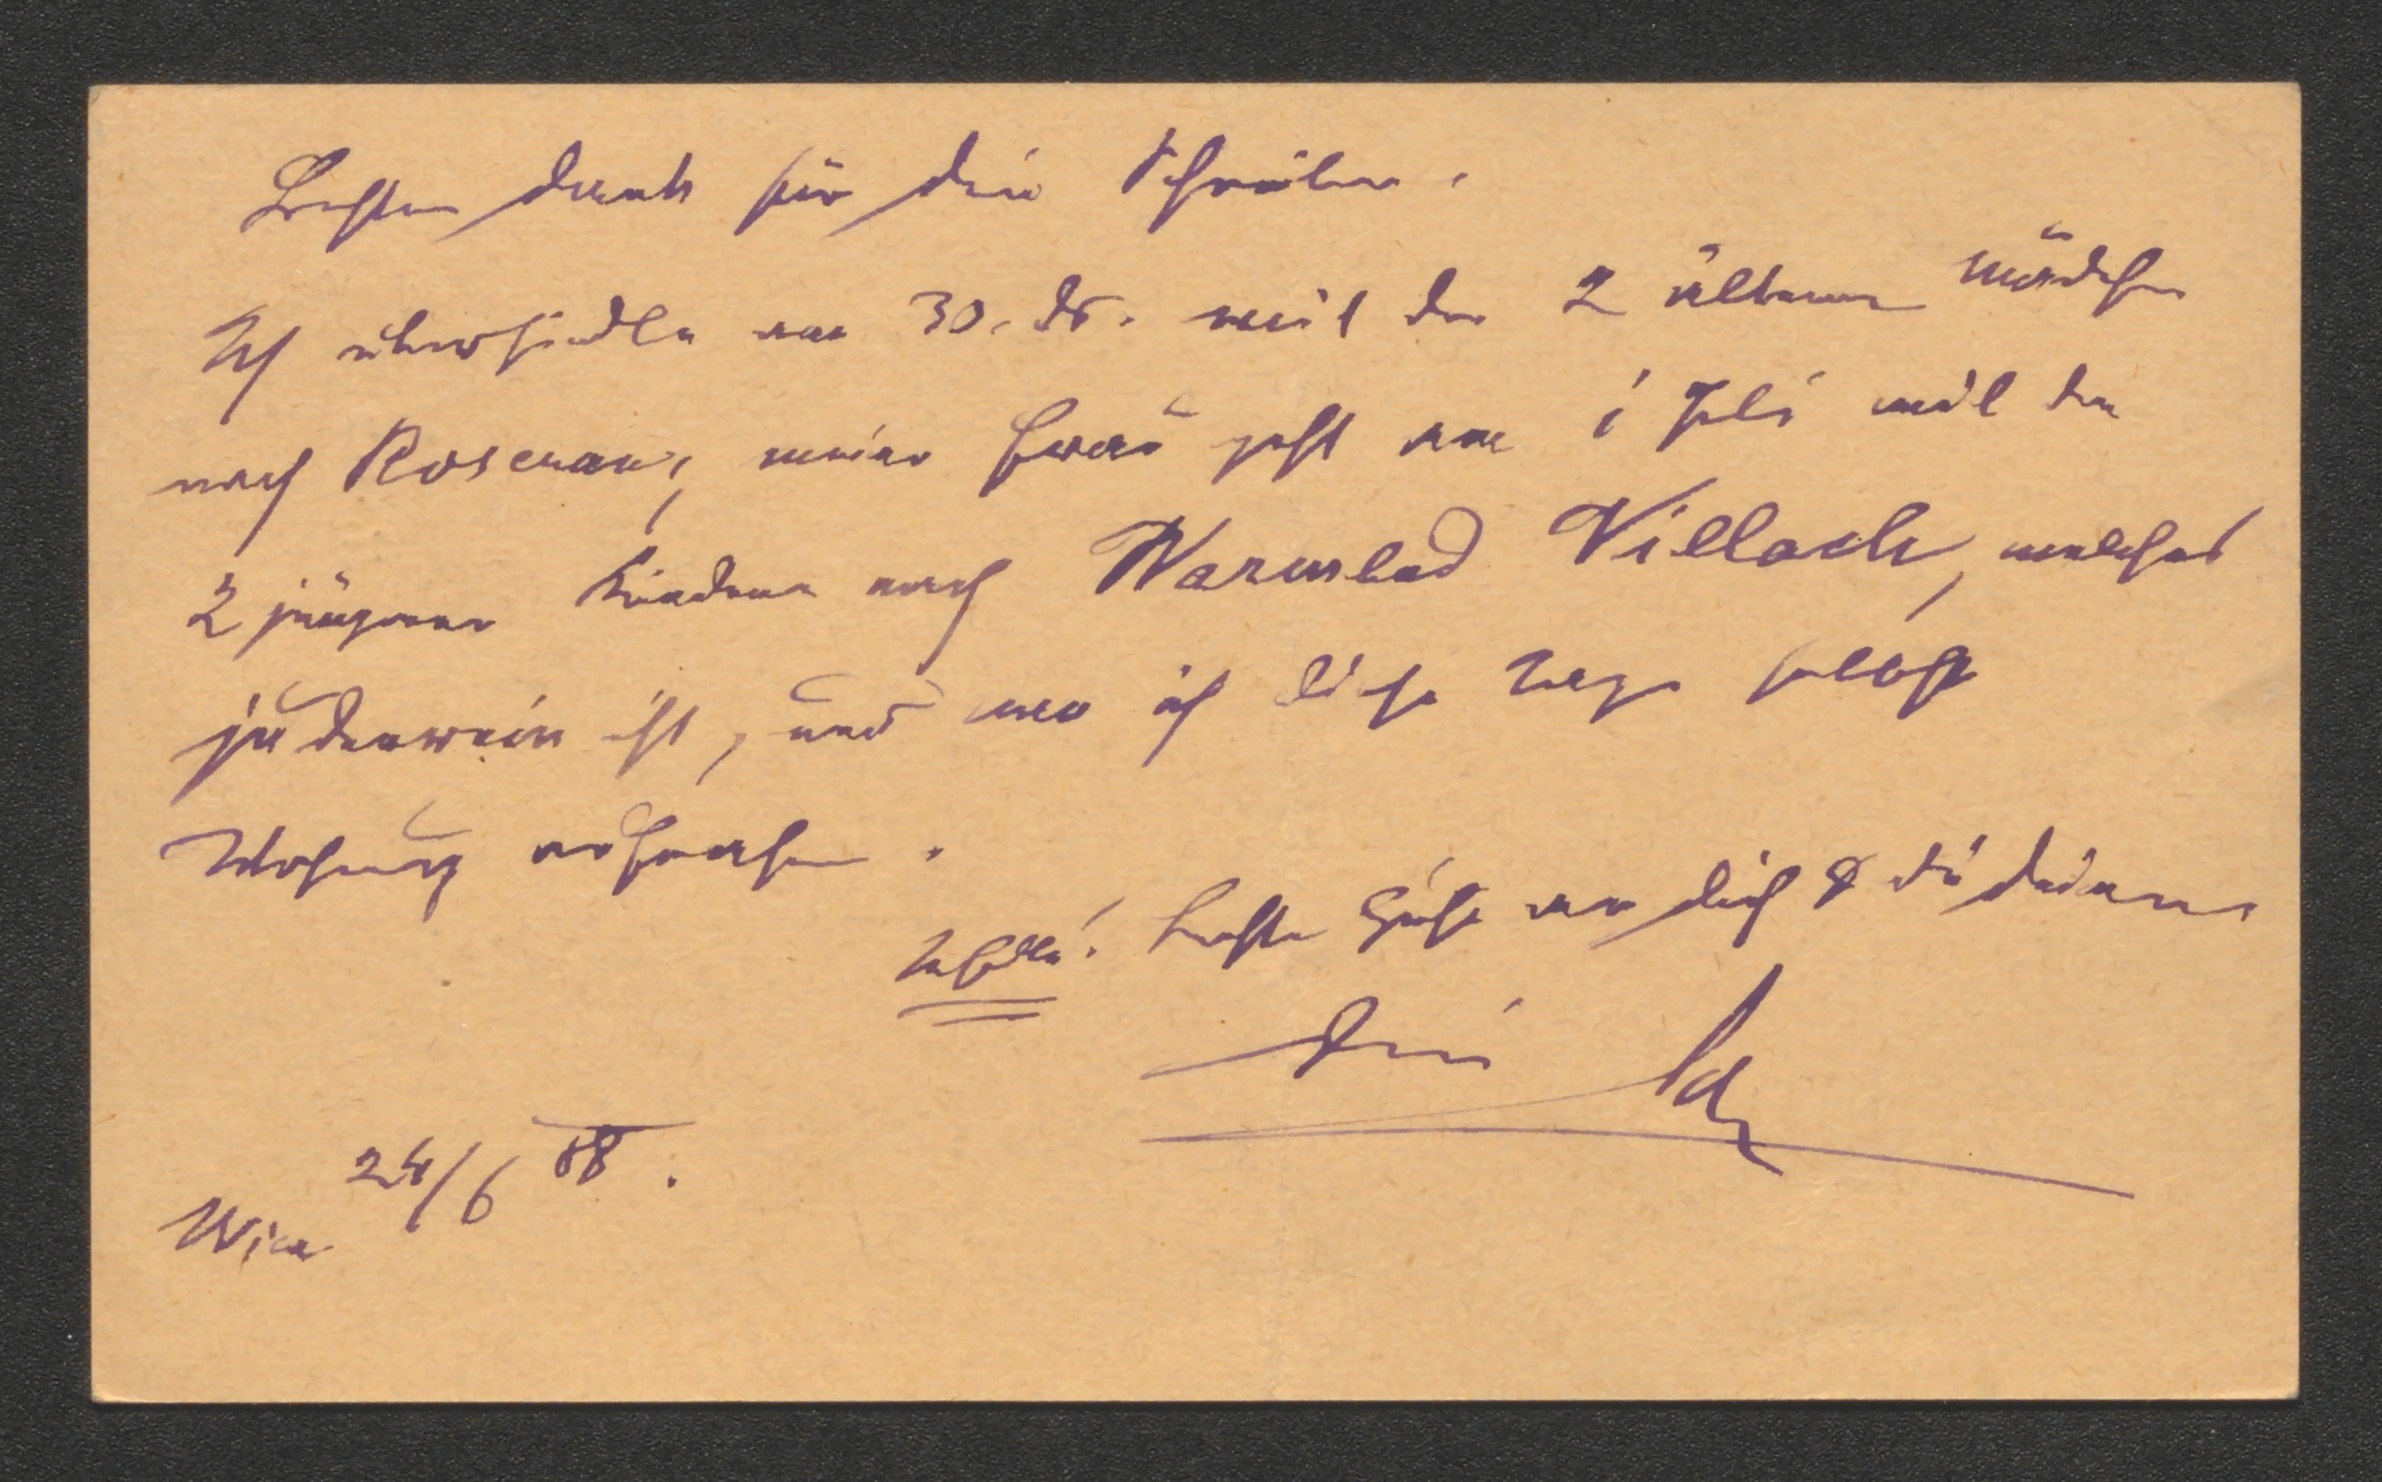 Besten Dank für dein Schreiben.
Ich übersiedle am 30. ds. mit den 2 älteren Mädchen
nach Rosenau, meine Frau geht am 1 Juli mit den
2 jüngeren Kindern nach Warmbad Villach, welches
judenrein ist, und wo ich diese Tage selbst
Wohnung aufnahm.
beste Grüße an dich & die deinen
Dein
Wien 24/6 88.